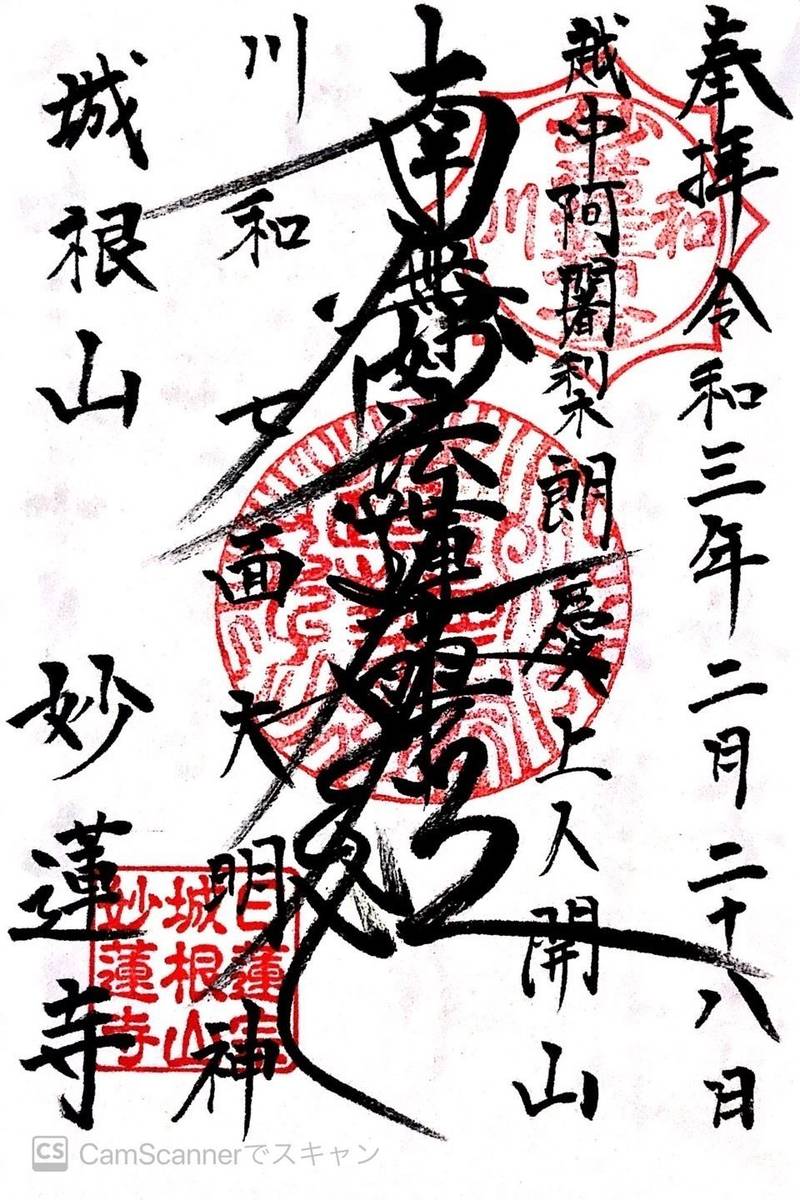 奉拝 令和三年 二月二十八日
越中阿闍梨朗慶上人開山
南無妙法蓮華経
川和 七面大明神
城根山 妙蓮寺
和
川
妙蓮寺
日蓮宗
城根山
妙蓮寺
CS CamScannerでスキャン